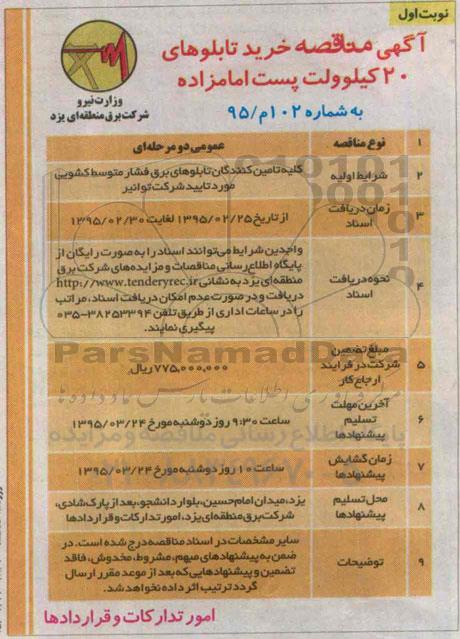 نوبت اول
آگهی مناقصه خرید تابلوهای
۲۰ کیلوولت پست امامزاده
به شماره ۱۰۲م/۹۵
وزارت نیرو
شرکت برق منطقه‌ای یزد
۱ نوع مناقصه عمومی دو مرحله‌ای
۲ شرایط اولیه کلیه تامین کنندگان تابلوهای برق فشار متوسط کشویی
مورد تایید شرکت توانیر
۳ زمان دریافت
اسناد از تاریخ ۱۳۹۵/۰۲/۲۵ لغایت ۱۳۹۵/۰۲/۳۰
۴ نحوه دریافت
اسناد
واجدین شرایط می‌توانند اسناد را به صورت رایگان از
پایگاه اطلاع رسانی مناقصات و مزایده‌های شرکت برق
منطقه‌ای یزد به نشانی http://www.tenderyrec.ir
دریافت و در صورت عدم امکان دریافت اسناد، مراتب
را در ساعات اداری از طریق تلفن ۳۸۲۵۳۳۹۴-۰۳۵
پیگیری نمایند.
۵ مبلغ تضمین
شرکت در فرایند
ارجاع کار
۷۷۵,۰۰۰,۰۰۰ ریال
۶ آخرین مهلت
تسلیم
پیشنهادها
ساعت ۹:۳۰ روز دوشنبه مورخ ۱۳۹۵/۰۳/۲۴
۷ زمان گشایش
پیشنهادها
ساعت ۱۰ روز دوشنبه مورخ ۱۳۹۵/۰۳/۲۴
۸ محل تسلیم
پیشنهادها
یزد، میدان امام حسین، بلوار دانشجو، بعد از پارک شادی،
شرکت برق منطقه‌ای یزد، امور تدارکات و قراردادها
۹ توضیحات
سایر مشخصات در اسناد مناقصه درج شده است. در
ضمن به پیشنهادهای مبهم، مشروط، مخدوش، فاقد
تضمین و پیشنهادهایی که بعد از موعد مقرر ارسال
گردد ترتیب اثر داده نخواهد شد.
امور تدارکات و قراردادها
ParsNamadData
پایگاه اطلاع رسانی مناقصه و مزایده